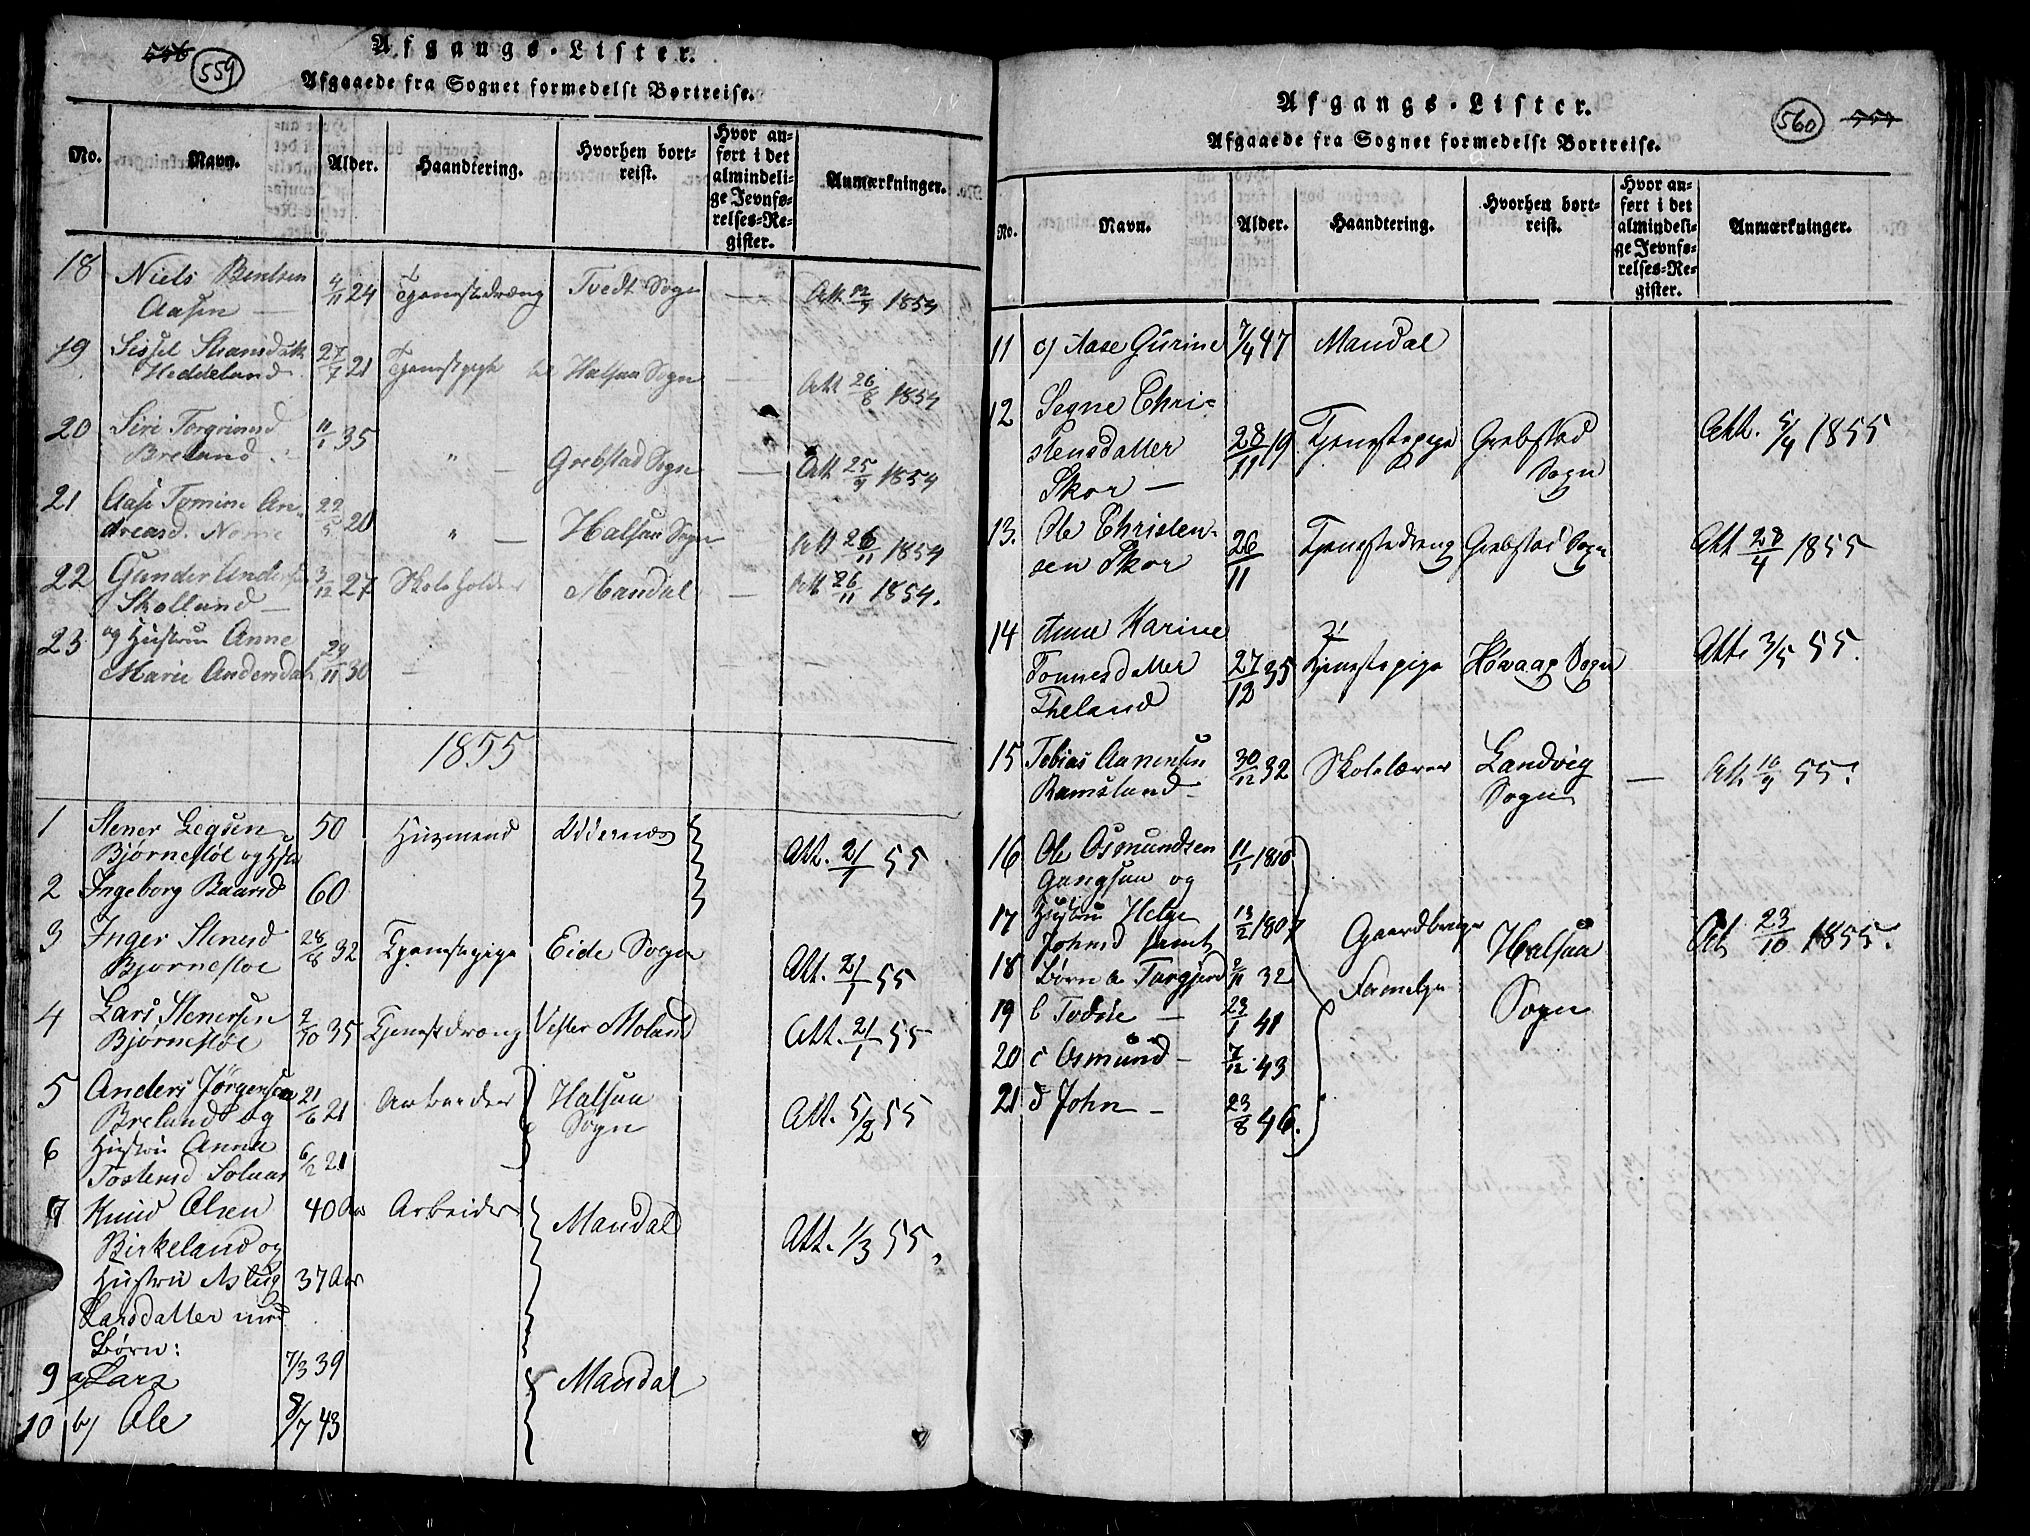 556 559
Afgangs-Lister.
Afgaaede fra Sognet formedelst Bortreise.
No. Navn. Alder. Haandtering. Hvorhen bortreist. Hvor anført i det almindelige Jevnførelses-Register. Anmærkninger.
18 Niels Bentsen 4/11 24 Tjenestedræng Tvedt Sogn — Att. 12/9 1854
Aasen —
19 Sissel 27/7 21 Tjenestpige Halsaa Sogn — Att 26/8 1854
Heddeland
20 Siri Torgrimsd 11/1 35 " — Grebstad Sogn — Att 25/9 1854
Breland
21 Aase Tomine An- 22/5 20 " — Halsaa Sogn Att 26/11 1854
dreasd. Nome
22 Gunder Anders 3/12 27 Skoleholder Mandal — Att 26/11 1854.
Skolland —
23 og Hustru Anne
Marie Andersdatt 29/11 30 — —
1855
1 Stener Legsen 50 Huusmand Oddernæs Att. 21/1 55
Bjørnestøl og Hstr
2 Ingeborg Baarsd 60
3 Inger Stenersd 28/8 32 Tjenestepige Eide Sogn Att. 21/1 55
Bjørnestøl
4 Lars Stenersen 2/10 35 Tjenestdræng Vester Moland Att. 21/1 55
Bjørnestøl
5 Anders Jørgensen 21/6 21 Arbeider Halsaa Att. 5/2 55
Breland og Sogn
6 Hustru Anne 6/2 21
Tostensd Solaas
7 Knud Olsen 40 Aar Arbeider Mandal Att. 1/3 55.
Birkeland og
Hustru Aslug 37 Aar
Larsdatter med
Børn:
9 a) Lars 7/3 39 Mandal
10 b) Ole 8/7 43
560
Afgangs-Lister.
Afgaaede fra Sognet formedelst Bortreise.
No. Navn. Alder. Haandtering. Hvorhen bortreist. Hvor anført i det almindelige Jevnførelses-Register. Anmærkninger.
11 c) Aase Gurine 7/4 47 Mandal
12 Segne Chri-
stensdatter 28/11 19 Tjenestepige Grebstad Att. 5/4 1855
Skor — Sogn
13. Ole Christen- 26/11 Tjenestedreng Grebstad Sogn Att 28/4 1855
sen Skor
14 Anne Karine
Tonnesdatter 27/12 35 Tjenestepige Høvaag Sogn Att. 3/5 55.
Theland
15 Tobias Aanensen 30/12 32 Skolelærer Landvig — Att. 16/9 55.
Ramsland — Sogn
16 Ole Osmundsen 11/1 1810
Gangsaa og
17 Hustru Helge 13/2 1807 Gaardbruger Halsaa Att 23/10 1855.
Johnsd samt
18 Børn a Torgjerd 2/11 32 Familje Sogn
19 b Todne — 23/1 41
20 c Osmund — 7/12 43
21 d John — 23/8 46.